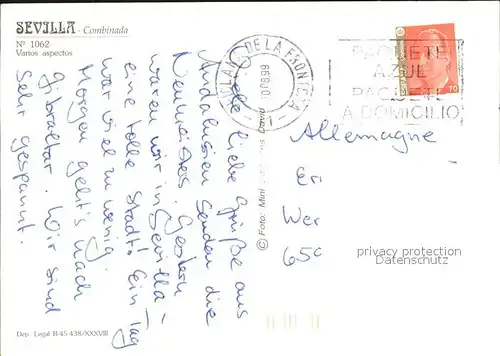 SEVILLA - Combinada
Nº 1062
Varios aspectos
Viele liebe Grüße aus
Andalusien senden die
Neumeisters. Gestern
waren wir in Sevilla –
eine tolle Stadt! Ein Tag
war viel zu wenig.
Morgen geht's nach
Gibraltar. Wir sind
sehr gespannt.
Dep. Legal B-45 438/XXXVIII
© Foto: Mini
DE LA FRONTERA
PAQUETE
AZUL
PAQUETE
A DOMICILIO
70
Allemagne
Wer
privacy protection
Datenschutz